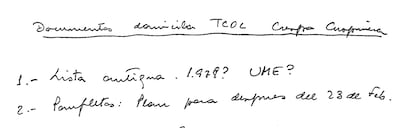 Documentos domicilio TCOL Crespo Cuspinera
1.- Lista antigua. 1.978? UME?
2.- Panfletos: Plan para despues del 23 de Feb.